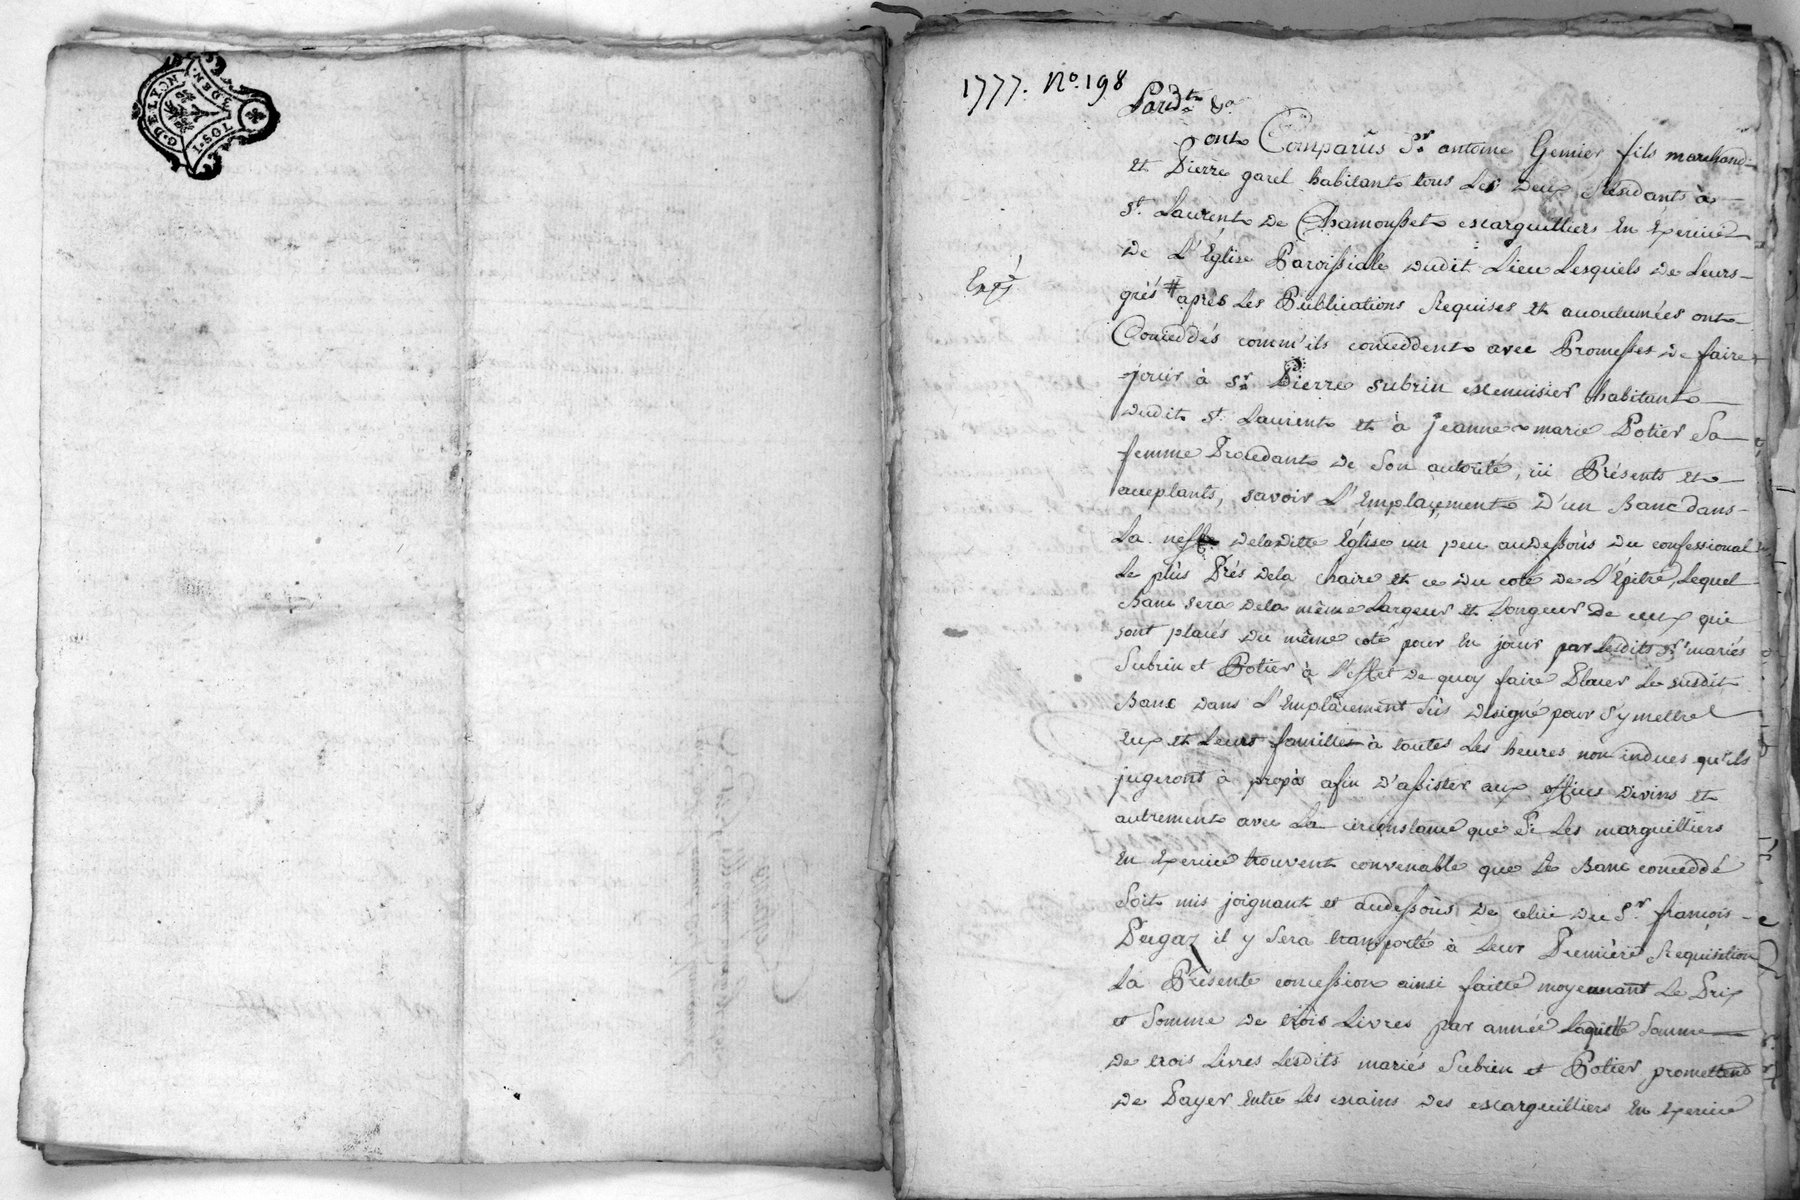 G. DE LYON
3 DEN.
1777. No. 198
Pardt. &a.
ont Comparüs Sr. antoine Gemier fils marchand
et Pierre garel habitant tous Les deux Résidants à
St. Laurent de Chamousset Marguilliers En Exercice
de L'Église Paroissiale dudit Lieu Lesquels de Leurs
Expé.
grés # après Les Publications Requises et accoutumées ont
Conceddés comm'ils conceddent avec Promesses de faire
jouir à Sr. Pierre subrin Menuisier habitant
dudit St. Laurent et à Jeanne marie Potier Sa
femme Procedant de Son autorité, ici Présents et
acceptants, savoir L'Emplaçement D'un Banc dans
La neff deladitte Église un peu audessoùs du confessional
Le plùs Prés dela chaire et ce du coté de L'Épitre, Lequel
Banc sera dela même Largeur et Longeur de ceux qui
sont placés du même coté pour En joüir par Lesdits Srs. mariés
Subrin et Potier à l'effet de quoy faire Placer Le susdit
Banc dans L'Emplacement Sùs designé pour s'y mettre
Eux et Leurs familles à toutes Les heures non indues qu'ils
jugeront à propos afin d'assister aux offices divins et
autrement avec La circonstance que Si Les marguilliers
En Exercice trouvent convenable que Le Banc conceddé
Soit mis joignant et audessoùs de celui du Sr. françois
Dugaz il y Sera transporté à Leur Premiere Requisition
La Présente concession ainsi faitte moyennant Le Prix
et Somme de trois Livres par année Laquelle Somme
de trois Livres Lesdits mariés Subrin et Potier promettend
de Payer Entre Les Mains des Marguilliers En Exercice